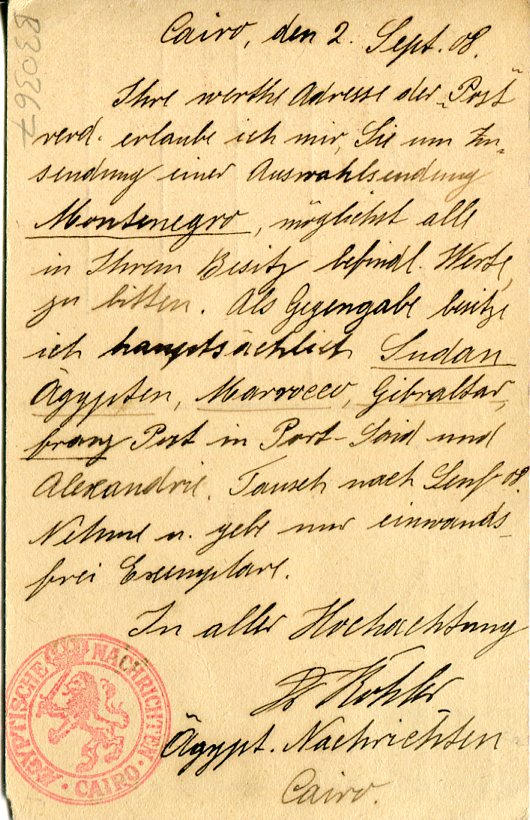 B30367
Cairo, den 2. Sept. 08.
Ihre werthe Adresse der „Post"
verd. erlaube ich mir, Sie um Zu-
sendung einer Auswahlsendung
Montenegro, möglichst alle
in Ihrem Besitz befindl. Werte,
zu bitten. Als Gegengabe besitze
ich hauptsächlich Sudan
Ägypten, Marocco, Gibraltar,
franz Post in Port-Said und
Alexandrie. Tausch nach Senf 08.
Nehme u. gebe nur einwands-
frei Exemplare.
In aller Hochachtung
Köhler
Ägypt. Nachrichten
Cairo.
ÆGYPTISCHE NACHRICHTEN
· CAIRO ·